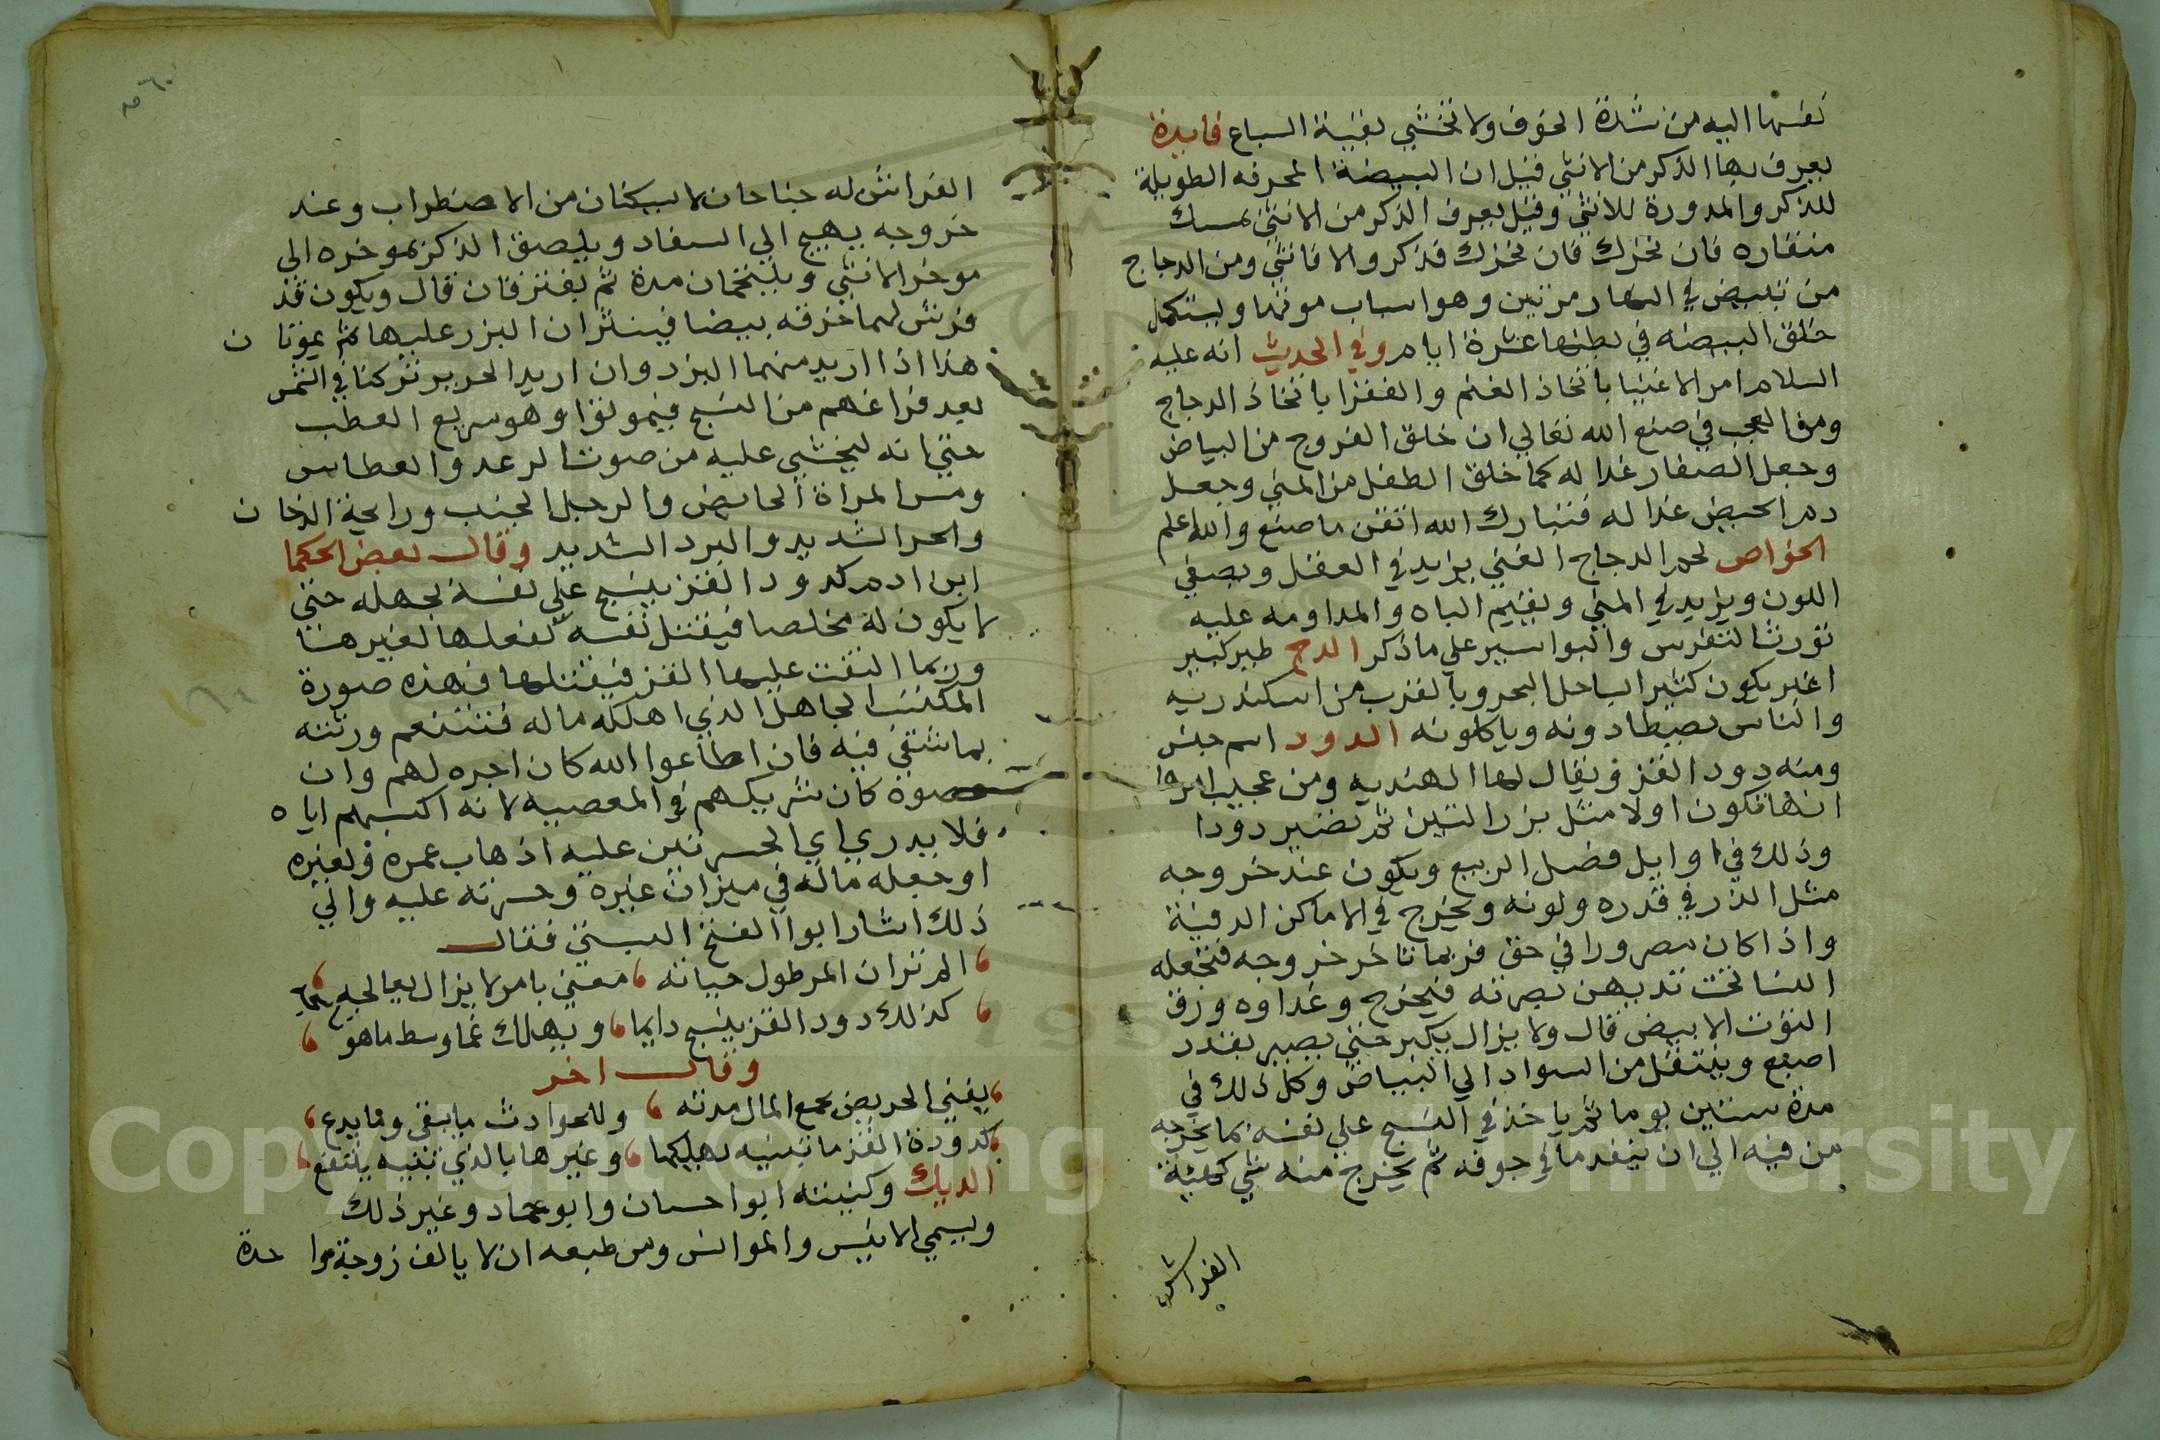 نفسها اليه من شدة الخوف ولا تخشي بقية السباع فايدة
يعرف بها الذكر من الانثي قيل ان البيضة المحرفه الطويلة
للذكر والمدورة للانثي وقيل يعرف الذكر من الانثي بمسك
منقاره فان تحرك فان تحرك فذكر والا فانثي ومن الدجاج
من تبيض في النهار مرتين وهو اسباب موتها ويستكمل
خلق البيضه في بطنها عشرة ايام وفي الحديث انه عليه
السلام امر الاغنيا باتخاذ الغنم والفقرا باتخاذ الدجاج
ومن العجب في صنع الله تعالي ان خلق الفروج من البياض
وجعل الصفار غذا له كما خلق الطفل من المني وجعل
دم الحيض غذا له فتبارك الله اتقن ما صنع والله اعلم
الخواص لحم الدجاج الفتي يزيد في العقل ويصفي
اللون ويزيد في المني ويقيم الباه والمداومه عليه
تورث النقرس والبواسير علي ما ذكر الدج طير كبير
اغبر يكون كثيرا بساحل البحر وبالقرب من اسكندريه
والناس يصيطادونه وياكلونه الدود اسم جنس
ومنه دود القز ويقال لها الهنديه ومن عجيب امرها
انها تكون اولا مثل بزر التين ثم تصير دودا
وذلك في اوايل فصل الربيع ويكون عند خروجه
مثل الذر في قدره ولونه ويخرج في الاماكن الدفية
واذا كان مصرورا في حق فربما تاخر خروجه فتجعله
النسا تحت ثديهن بصرته فيخرج وغذاوه ورق
التوت الابيض قال ولا يزال يكبر حتي يصير بقدر
اصبع وينتقل من السواد الي البياض وكل ذلك في
مدة ستين يوما ثم ياخذ في النسج علي نفسه بما يخرجه
من فيه الي ان ينفد ما في جوفه ثم يخرج منه شي كهيئة
الفراش
الفراش له جناحان لا يسكنان من الاضطراب وعند
خروجه يهيج الي السفاد ويلصق الذكر بموخره الي
موخر الانثي ويلتحمان مدة ثم يفترقان قال ويكون قد
فرش لهما خرقه بيضا فينثران البزر عليها ثم يموتان
هذا اذا اريد منهما البزر وان اريد الحرير تركنا في الشمس
بعد فراغهم من النسج فيموتوا وهو سريع العطب
حتي انه ليخشي عليه من صوت الرعد والعطاس
ومس المراة الحايض والرجل الجنب ورايحة الدخان
والحر الشديد والبرد الشديد وقال بعض الحكما
ابن ادم كدود القز ينسج علي نفسه بجهله حتي
لا يكون له مخلصا فيقتل نفسه لفعلها لغيرها
وربما التفت عليها القز فيقتلها فهذه صورة
المكتسب الجاهل الذي اهلكه ماله فتتنعم ورثته
بما شقي فيه فان اطاعوا الله كان اجره لهم وان
عصوه كان شريكهم في المعصيه لانه اكسبهم اياه
فلا يدري اي الحسرتين عليه اذهاب عمره ولغيره
او جعله ماله في ميزان غيره وحسرته عليه والي
ذلك اشار ابوا الفتح البستي فقال
الم تر ان المر طول حياته معني بامر لا يزال يعالجه
كذلك دود القز ينسج دايما ويهلك غما وسط ما هو
وقال اخر
يفني الحريص بجمع المال مدته وللحوادث ما يبقي وما يدع
كدودة القز ما تبنيه يهلكها وغيرها بالذي تبنيه ينتفع
الديك وكنيته ابوا حسان وابو حماد وغير ذلك
ويسمي الانيس والموانس ومن طبعه ان لا يالف زوجة واحدة
Copyright © King Saud University